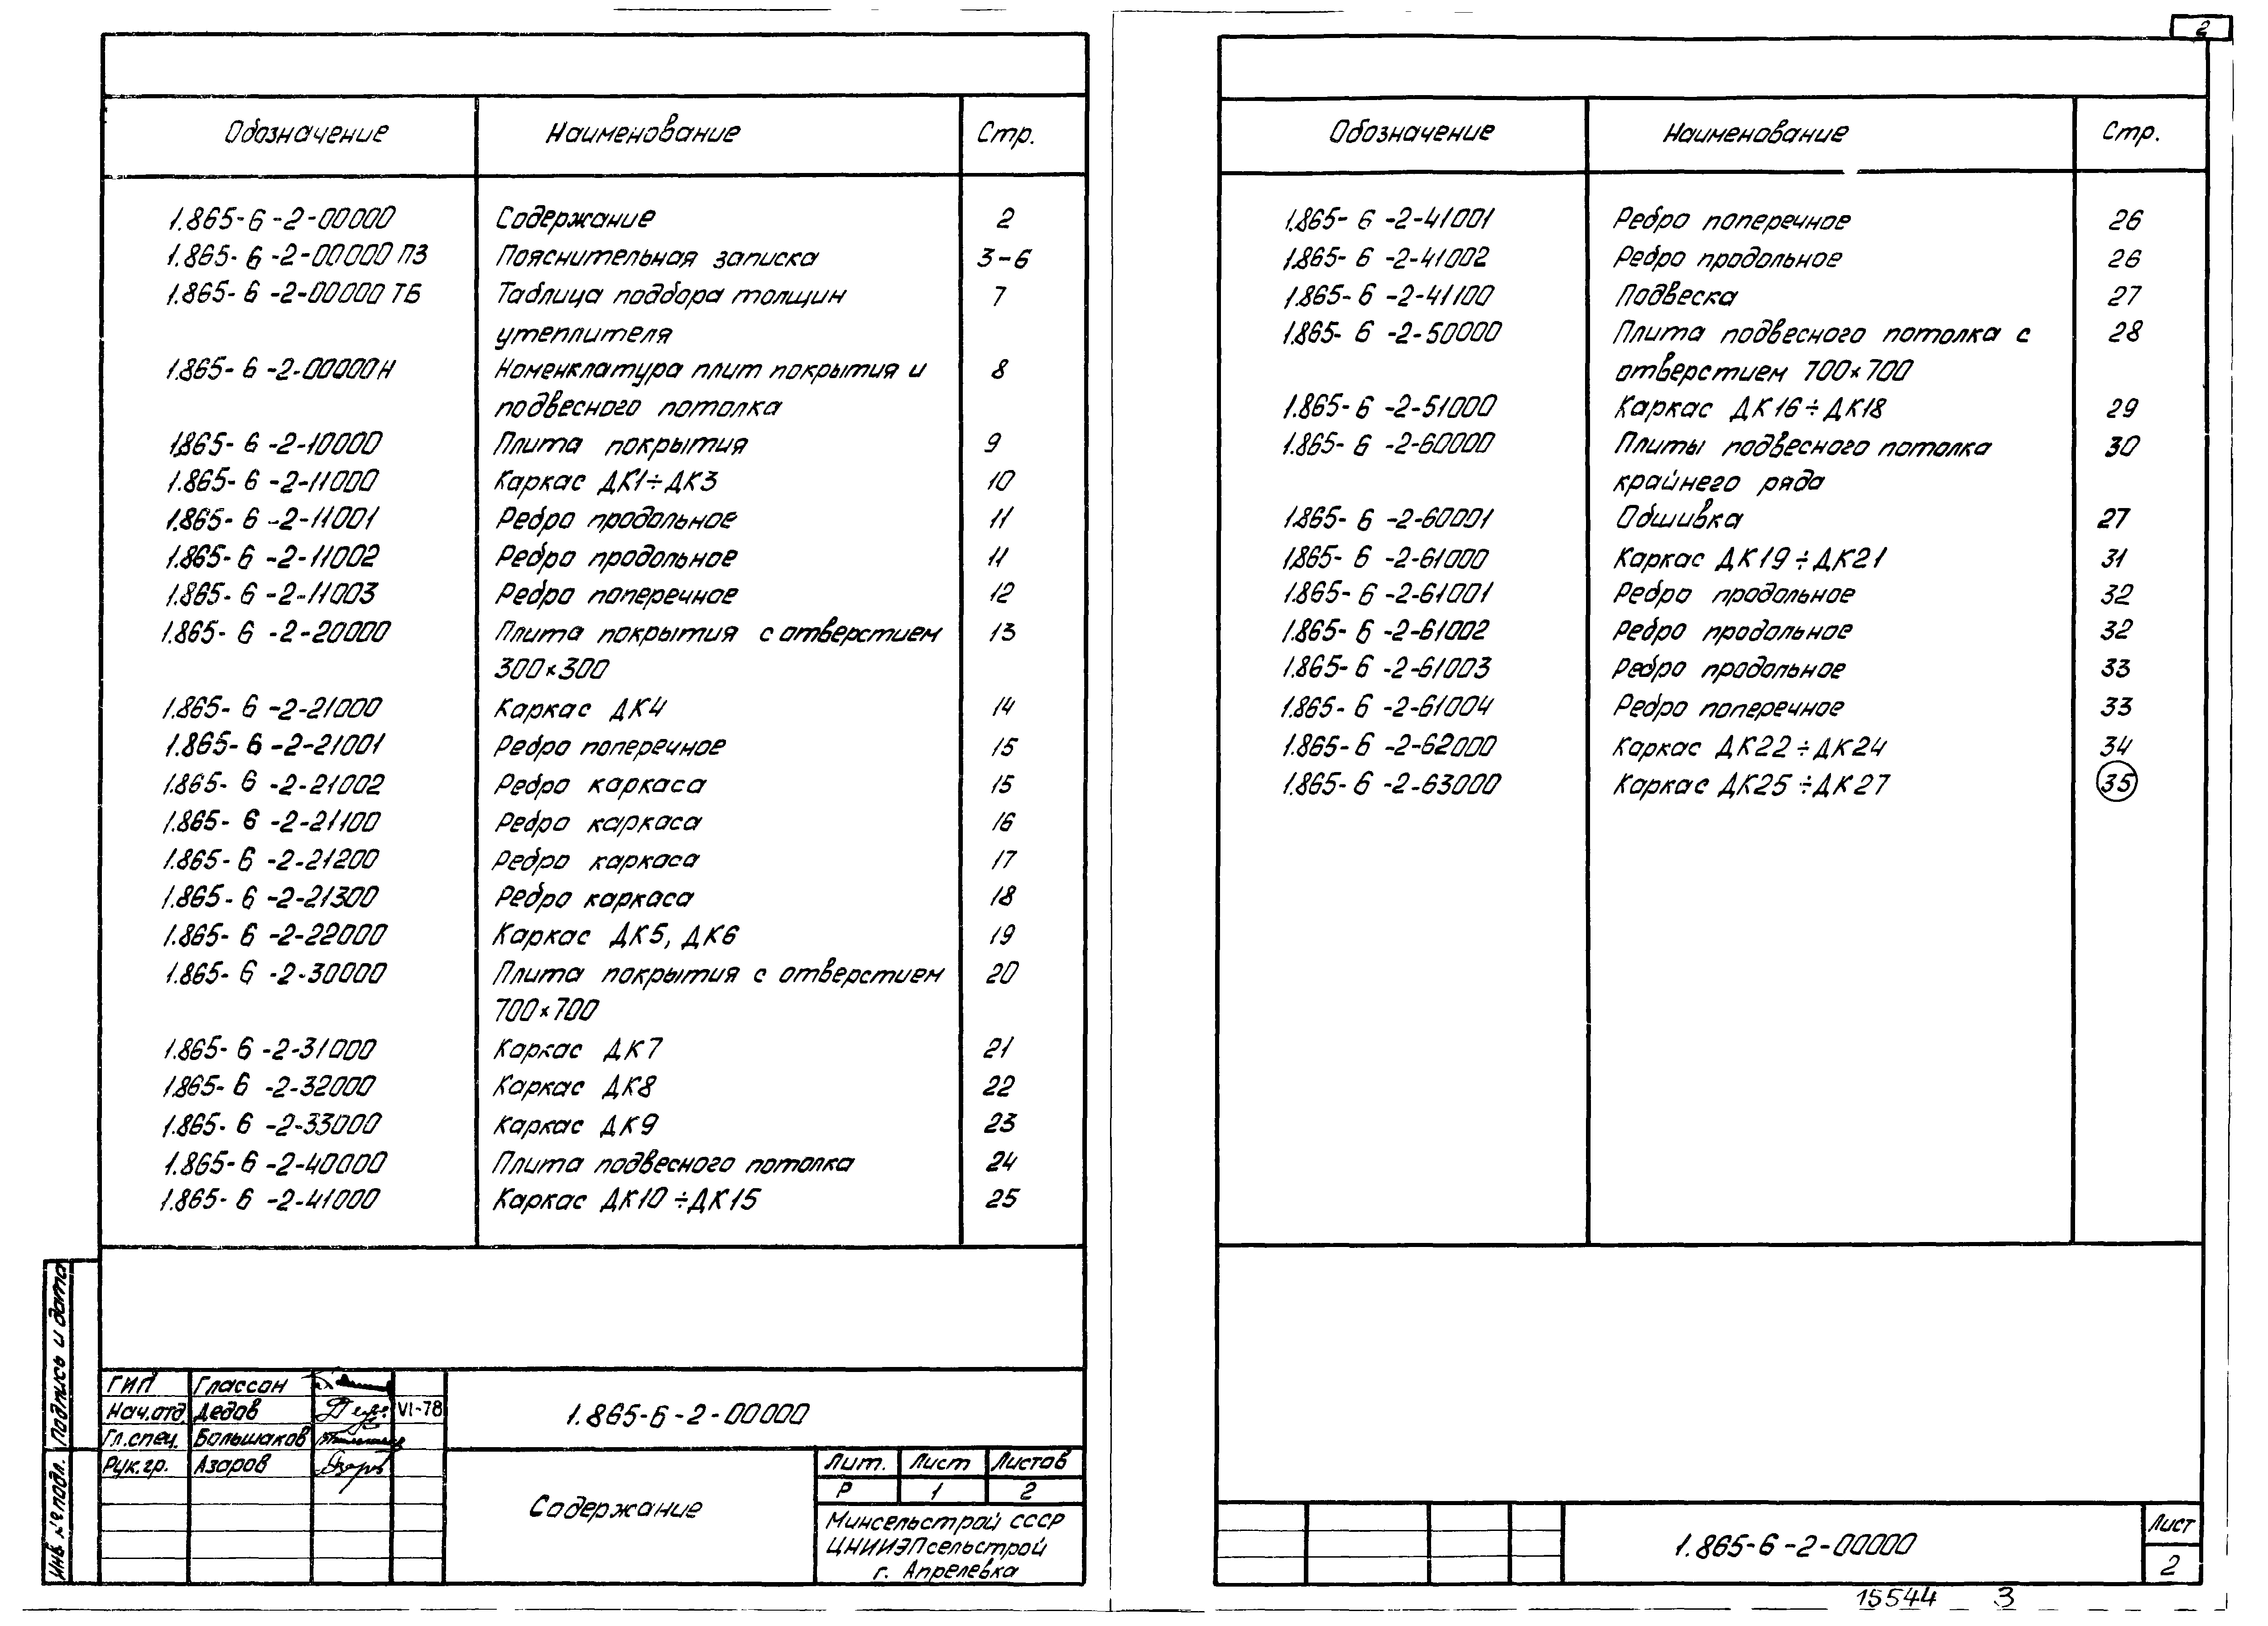 Обозначение Наименование Стр.
1.865-6-2-00000 Содержание 2
1.865-6-2-00000 ПЗ Пояснительная записка 3-6
1.865-6-2-00000 ТБ Таблица подбора толщин 7
утеплителя
1.865-6-2-00000 Н Номенклатура плит покрытия и 8
подвесного потолка
1.865-6-2-10000 Плита покрытия 9
1.865-6-2-11000 Каркас ДК1÷ДК3 10
1.865-6-2-11001 Ребро продольное 11
1.865-6-2-11002 Ребро продольное 11
1.865-6-2-11003 Ребро поперечное 12
1.865-6-2-20000 Плита покрытия с отверстием 13
300×300
1.865-6-2-21000 Каркас ДК4 14
1.865-6-2-21001 Ребро поперечное 15
1.865-6-2-21002 Ребро каркаса 15
1.865-6-2-21100 Ребро каркаса 16
1.865-6-2-21200 Ребро каркаса 17
1.865-6-2-21300 Ребро каркаса 18
1.865-6-2-22000 Каркас ДК5, ДК6 19
1.865-6-2-30000 Плита покрытия с отверстием 20
700×700
1.865-6-2-31000 Каркас ДК7 21
1.865-6-2-32000 Каркас ДК8 22
1.865-6-2-33000 Каркас ДК9 23
1.865-6-2-40000 Плита подвесного потолка 24
1.865-6-2-41000 Каркас ДК10÷ДК15 25
Инв. № подл. Подпись и дата
ГИП Глассон
Нач.отд. Дедов VI-78
Гл.спец. Большаков
Рук.гр. Азаров
1.865-6-2-00000
Содержание
Лит. Лист Листов
Р 1 2
Минсельстрой СССР
ЦНИИЭПсельстрой
г. Апрелевка
2
Обозначение Наименование Стр.
1.865-6-2-41001 Ребро поперечное 26
1.865-6-2-41002 Ребро продольное 26
1.865-6-2-41100 Подвеска 27
1.865-6-2-50000 Плита подвесного потолка с 28
отверстием 700×700
1.865-6-2-51000 Каркас ДК16÷ДК18 29
1.865-6-2-60000 Плиты подвесного потолка 30
крайнего ряда
1.865-6-2-60001 Обшивка 27
1.865-6-2-61000 Каркас ДК19÷ДК21 31
1.865-6-2-61001 Ребро продольное 32
1.865-6-2-61002 Ребро продольное 32
1.865-6-2-61003 Ребро продольное 33
1.865-6-2-61004 Ребро поперечное 33
1.865-6-2-62000 Каркас ДК22÷ДК24 34
1.865-6-2-63000 Каркас ДК25÷ДК27 35
1.865-6-2-00000
Лист
2
15544 3